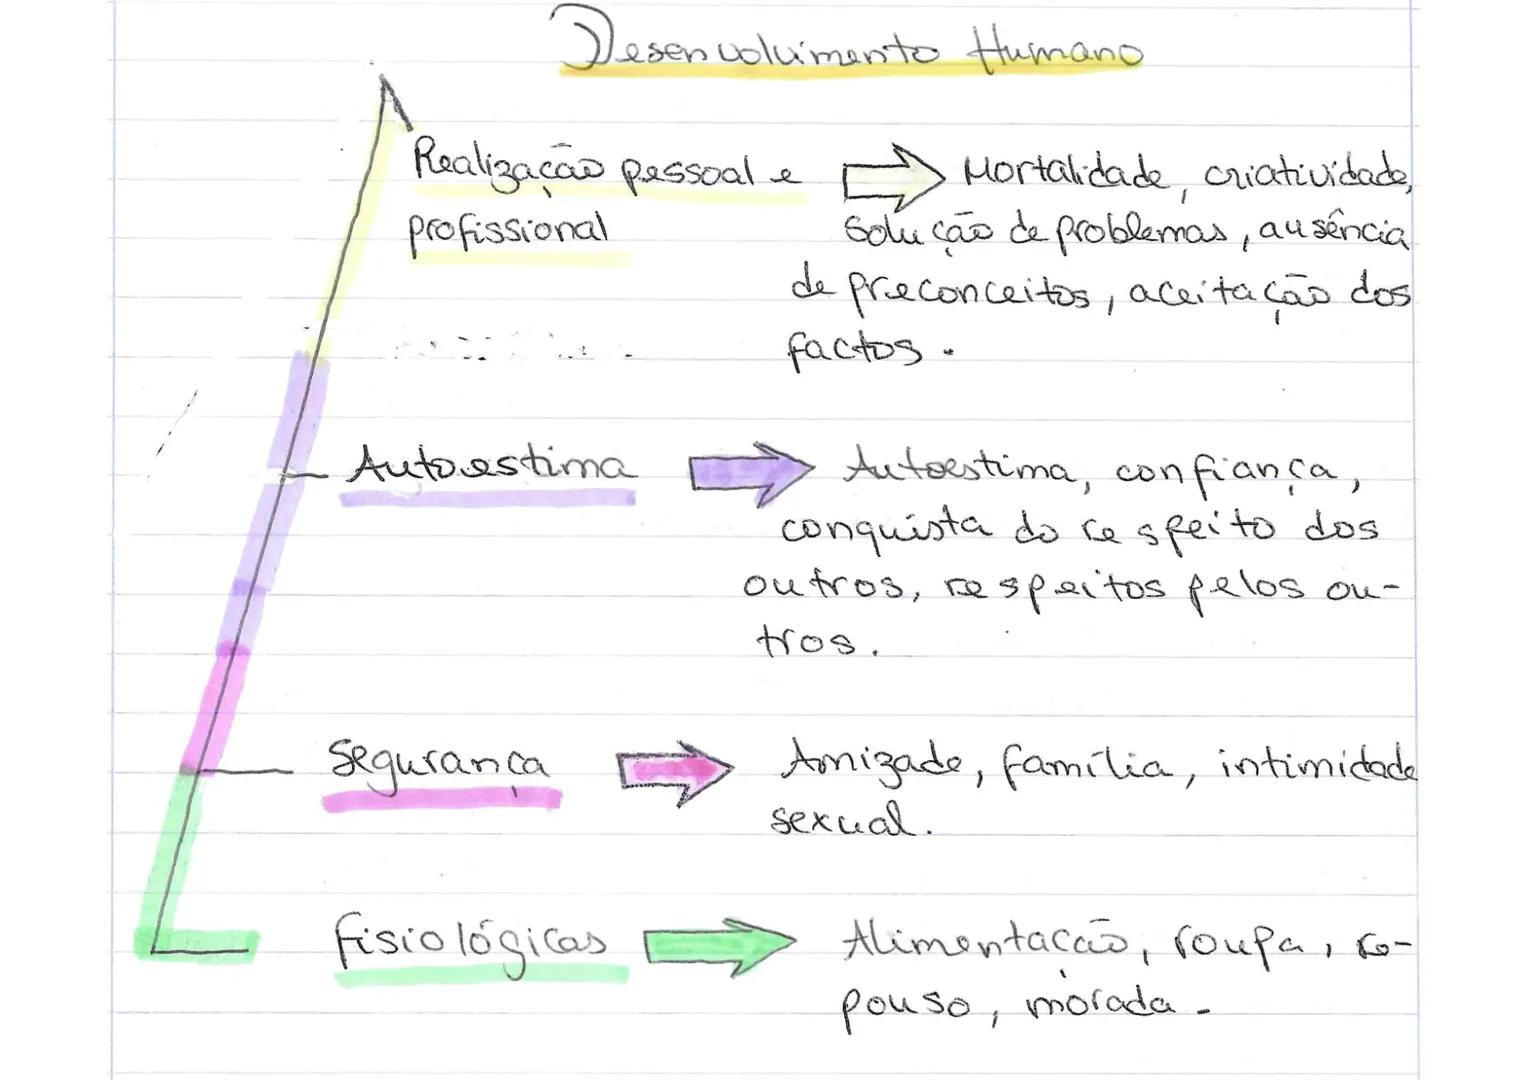 Desenvolvimento Humano
Realização pessoal e
profissional
Mortalidade, criatividade,
solução de problemas, ausência
de preconceitos, aceitação dos
factos.
Autoestima
Autoestima, confiança,
conquista do respeito dos
outros, respeitos pelos ou-
tros.
Segurança
Amizade, família, intimidade
sexual.
fisiológicas
Alimentação, roupa, re-
pouso, morada.